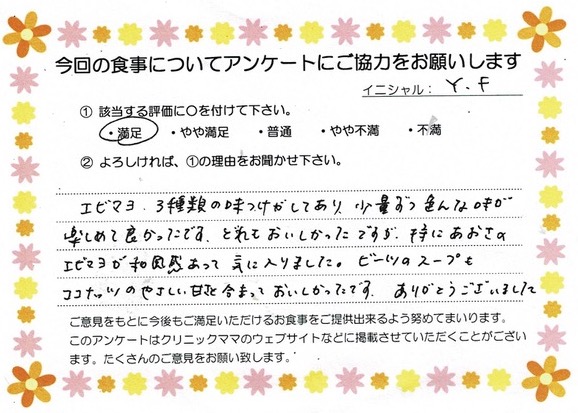 今回の食事についてアンケートにご協力をお願いします
イニシャル： Y.F
① 該当する評価に○を付けて下さい。
・満足 ・やや満足 ・普通 ・やや不満 ・不満
② よろしければ、①の理由をお聞かせ下さい。
エビマヨ、3種類の味つけがしてあり、少量ずつ色んな味が
楽しめて良かったです。どれもおいしかったですが、特にあおさの
エビマヨが和風感あって気に入りました。ビーツのスープも
ココナッツのやさしい甘さと合まっておいしかったです。ありがとうございました
ご意見をもとに今後もご満足いただけるお食事をご提供出来るよう努めてまいります。
このアンケートはクリニックママのウェブサイトなどに掲載させていただくことがござい
ます。たくさんのご意見をお願い致します。